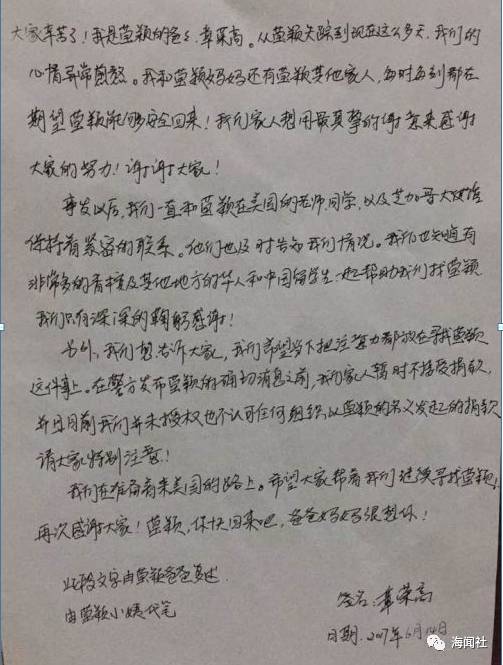 大家辛苦了！我是莹颖的爸爸章荣高。从莹颖失踪到现在这么多天，我们的
心情异常煎熬。我和莹颖妈妈还有莹颖其他家人，每时每刻都在
期望莹颖能够安全回来！我们家人想用最真挚的谢意来感谢
大家的努力！谢谢大家！
事发以后，我们一直和莹颖在美国的老师，同学，以及芝加哥大使馆
保持着紧密的联系。他们也及时告知我们情况。我们也知道有
非常多的香槟及其他地方的华人和中国留学生一起帮助我们找莹颖
我们只有深深的鞠躬感谢！
另外，我们想告诉大家，我们希望当下把注意力都放在寻找莹颖
这件事上。在警方发布莹颖的确切消息之前，我们家人暂时不接受捐款，
并且目前我们并未授权也不认可任何组织以莹颖的名义发起的捐款
请大家特别注意！
我们在准备着来美国的路上。希望大家帮着我们继续寻找莹颖，
再次感谢大家！莹颖，你快回来吧，爸爸妈妈很想你！
此段文字由莹颖爸爸口述
由莹颖小姨代笔
签名：章荣高
日期：2017年6月14日
海闻社